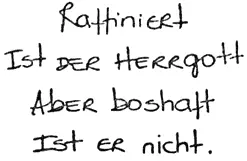 Raffiniert
Ist DER HERRgott
ABER boshaft
Ist ER nicht.